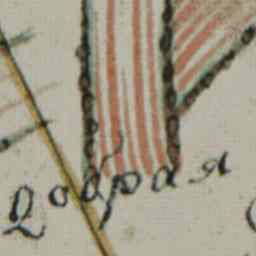 Добрая